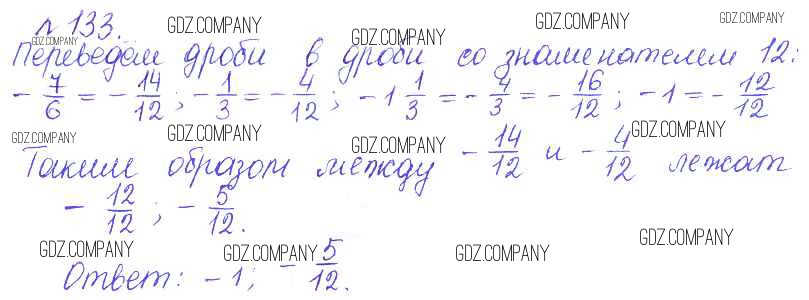 № 133.
Переведём дроби в дроби со знаменателем 12:
- 7/6 = - 14/12 ; - 1/3 = - 4/12 ; - 1 1/3 = - 4/3 = - 16/12 ; - 1 = - 12/12
Таким образом между - 14/12 и - 4/12 лежат
- 12/12 ; - 5/12.
Ответ: - 1 ; - 5/12.
GDZ.COMPANY
GDZ.COMPANY
GDZ.COMPANY
GDZ.COMPANY
GDZ.COMPANY
GDZ.COMPANY
GDZ.COMPANY
GDZ.COMPANY
GDZ.COMPANY
GDZ.COMPANY
GDZ.COMPANY
GDZ.COMPANY
GDZ.COMPANY